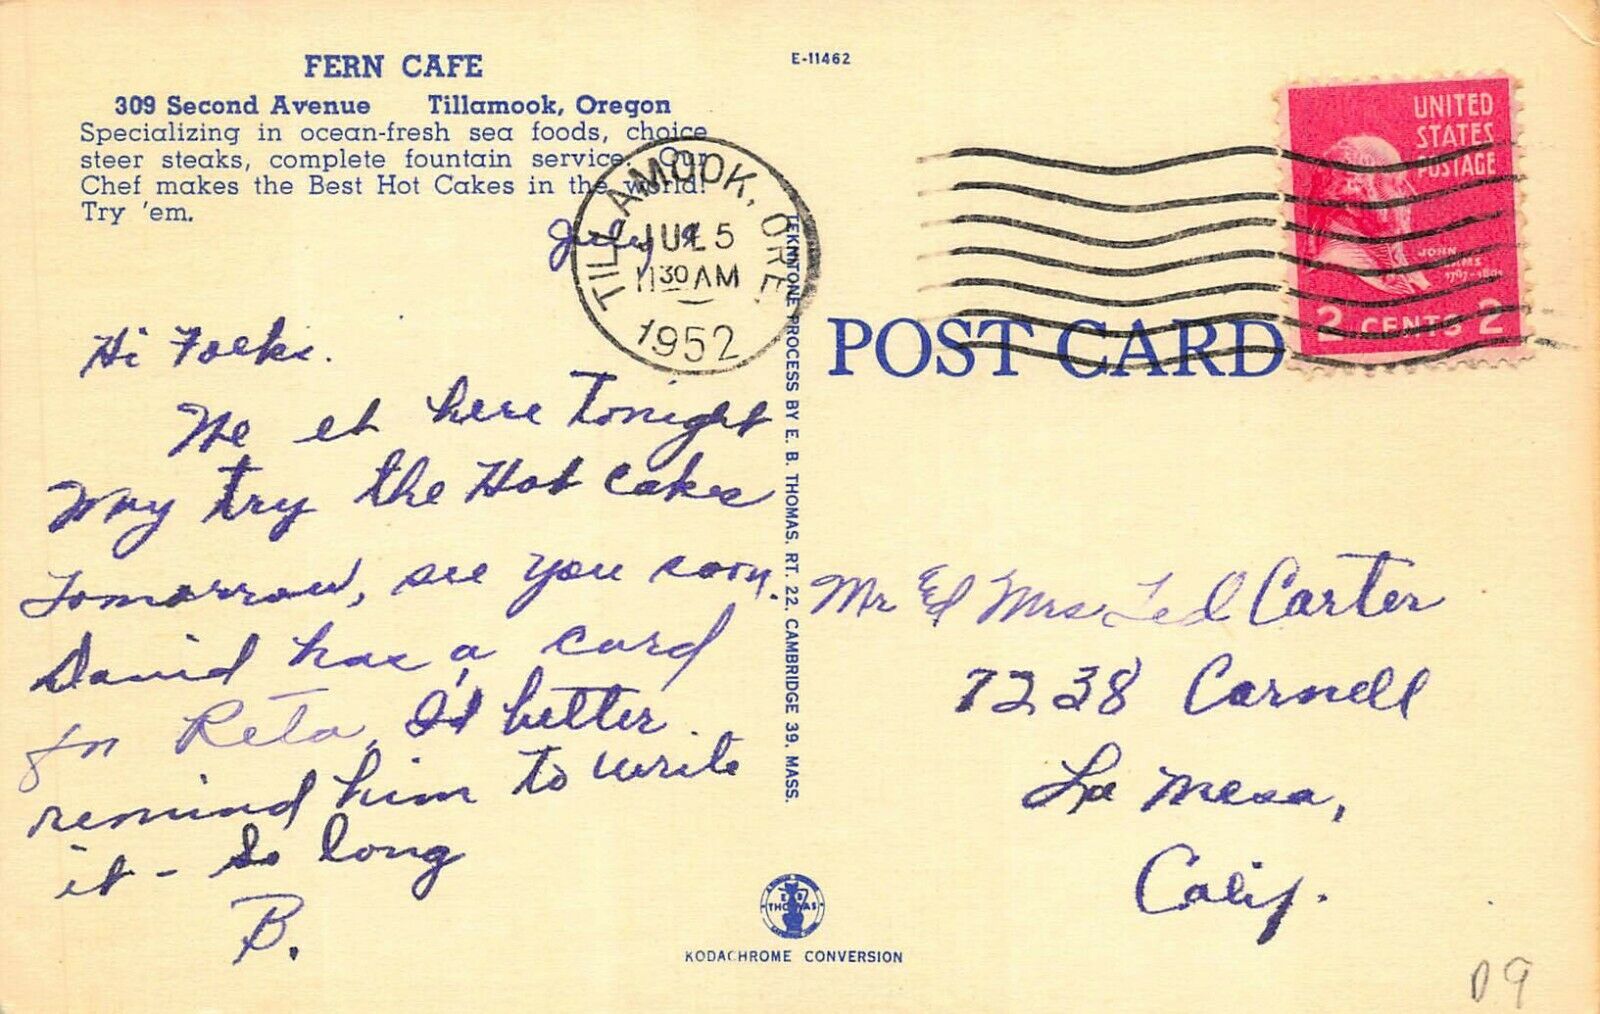 FERN CAFE
309 Second Avenue Tillamook, Oregon
Specializing in ocean-fresh sea foods, choice
steer steaks, complete fountain service. Our
Chef makes the Best Hot Cakes in the world!
Try 'em.
E-11462
TILLAMOOK, ORE.
JUL 5
11 30 AM
1952
UNITED
STATES
POSTAGE
JOHN ADAMS
1797-1801
2 CENTS 2
July
Hi Folks.
We et here Tonight
May try the Hot Cakes
Tomorrow, see you soon.
David has a card
for Reta, I'd better
remind him to write
it - So long
B.
TEKNITONE PROCESS BY E. B. THOMAS, RT. 22, CAMBRIDGE 39, MASS.
POST CARD
Mr Ed Mrs Ted Carter
7238 Cornell
La Mesa,
Calif.
E B
THOMAS
KODACHROME CONVERSION
D9